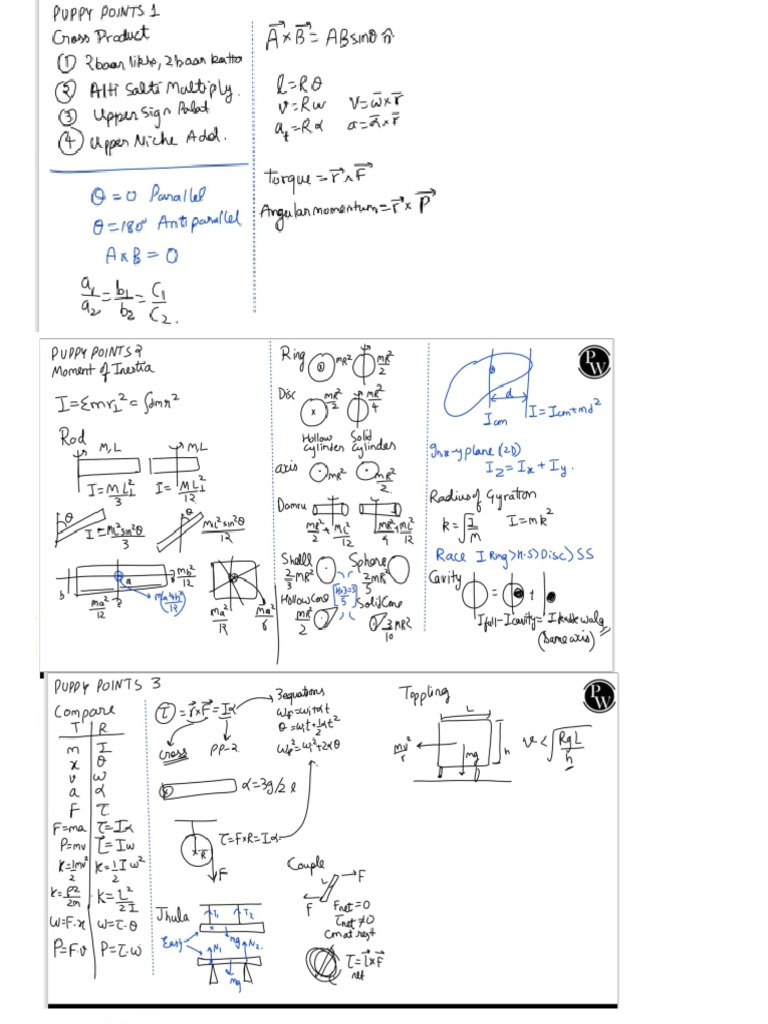 PUPPY POINTS 1
Cross Product
① 2 baar likho, 2 baar kaato
② Alti Salti Multiply.
③ Upper Sign Palat
④ Upper Niche Add.
θ = 0 Parallel
θ = 180° Antiparallel
A × B = 0
a₁/a₂ = b₁/b₂ = C₁/C₂.
A⃗ × B⃗ = AB sinθ n̂
l = Rθ
v = Rω V = ω̄ × r̄
aₜ = Rα a = ᾱ × r̄
Torque = r⃗ × F⃗
Angular momentum = r⃗ × P⃗
PUPPY POINTS 2
Moment of Inertia
I = Σmr⊥² = ∫dmr²
Rod
M,L M,L
I = ML²/3 I = ML²/12
θ θ
I = ML²sin²θ/3 ML²sin²θ/12
b a mb²/12
ma²/12
ma²/12 ma²/6
Ring mR² mR²/2
Disc mR²/2 mR²/4
Hollow cylinder Solid cylinder
axis mR² mR²/2
Damru
mR²/2 + ML²/12 mR²/4 + ML²/12
Shell Sphere
2/3 mR² 2/5 mR²
Hollow Cone Solid Cone
mR²/2 3/10 mR²
PW
d
Icm I = Icm + md²
In x-y plane (2D)
Iz = Ix + Iy.
Radius of Gyration
k = √(I/m) I = mk²
Race I Ring > H.S > Disc > SS
Cavity
= +
Ifull - Icavity =
(same axis)
PUPPY POINTS 3
Compare
T R
m I
x θ
v ω
a α
F τ
F = ma τ = Iα
P = mv L = Iω
K = 1/2 mv² K = 1/2 Iω²
K = P²/2m K = L²/2I
W = F.x W = τ.θ
P = F.v P = τ.ω
τ = r⃗ × F⃗ = Iα
cross PP-2
3 equations
ωf = ωi + αt
θ = ωit + 1/2 αt²
ωf² = ωi² + 2αθ
α = 3g/2l
R
τ = F × R = Iα
F
Jhula
T₁ T₂
Easy mg
N₁ N₂
mg
Couple
L F
F
Fnet = 0
τnet ≠ 0
cm at rest
τnet = l⃗ × F⃗
Toppling
L
mv²/r mg h
v < √(RgL/h)
PW